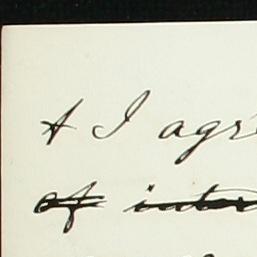 + I agre
of inter